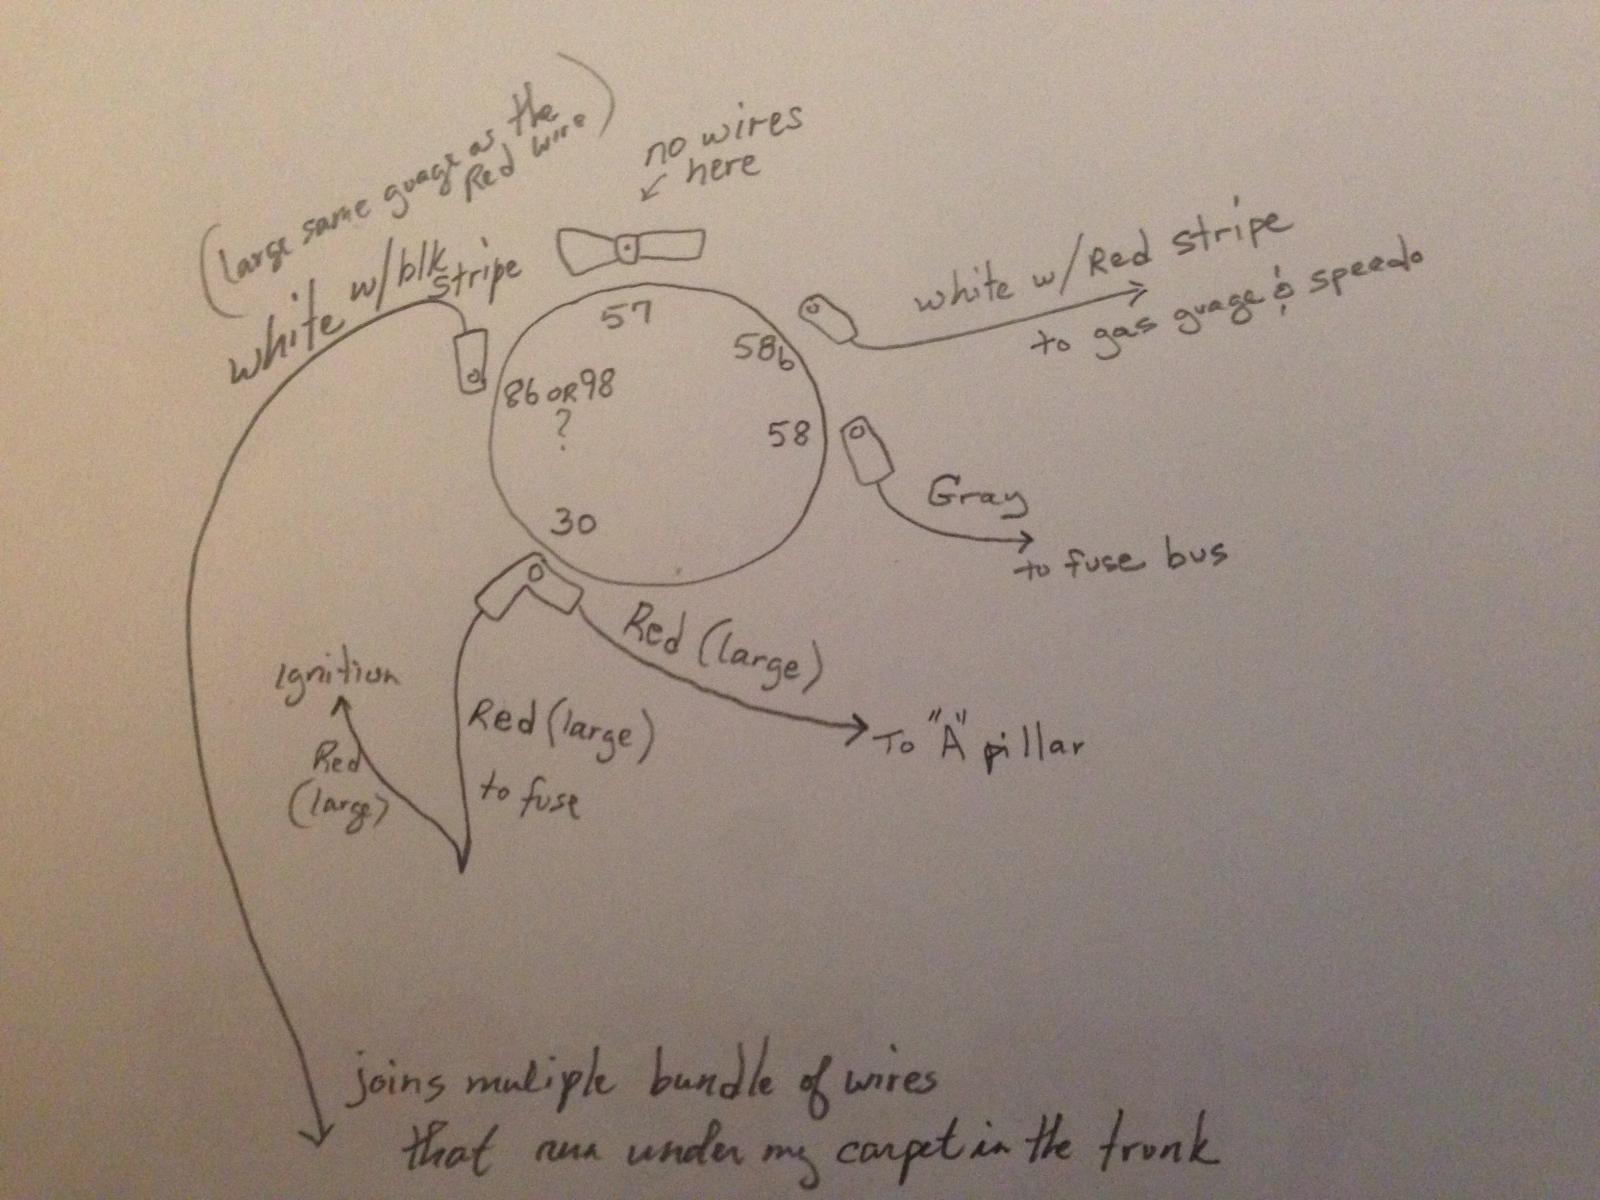 (large same guage as the
Red wire)
no wires
here
white w/blk
stripe
white w/Red stripe
to gas guage & speedo
57
58b
86 OR 98
?
58
Gray
to fuse bus
30
Red (large)
To "A" pillar
Ignition
Red
(large)
Red (large)
to fuse
joins muliple bundle of wires
that run under my carpet in the trunk